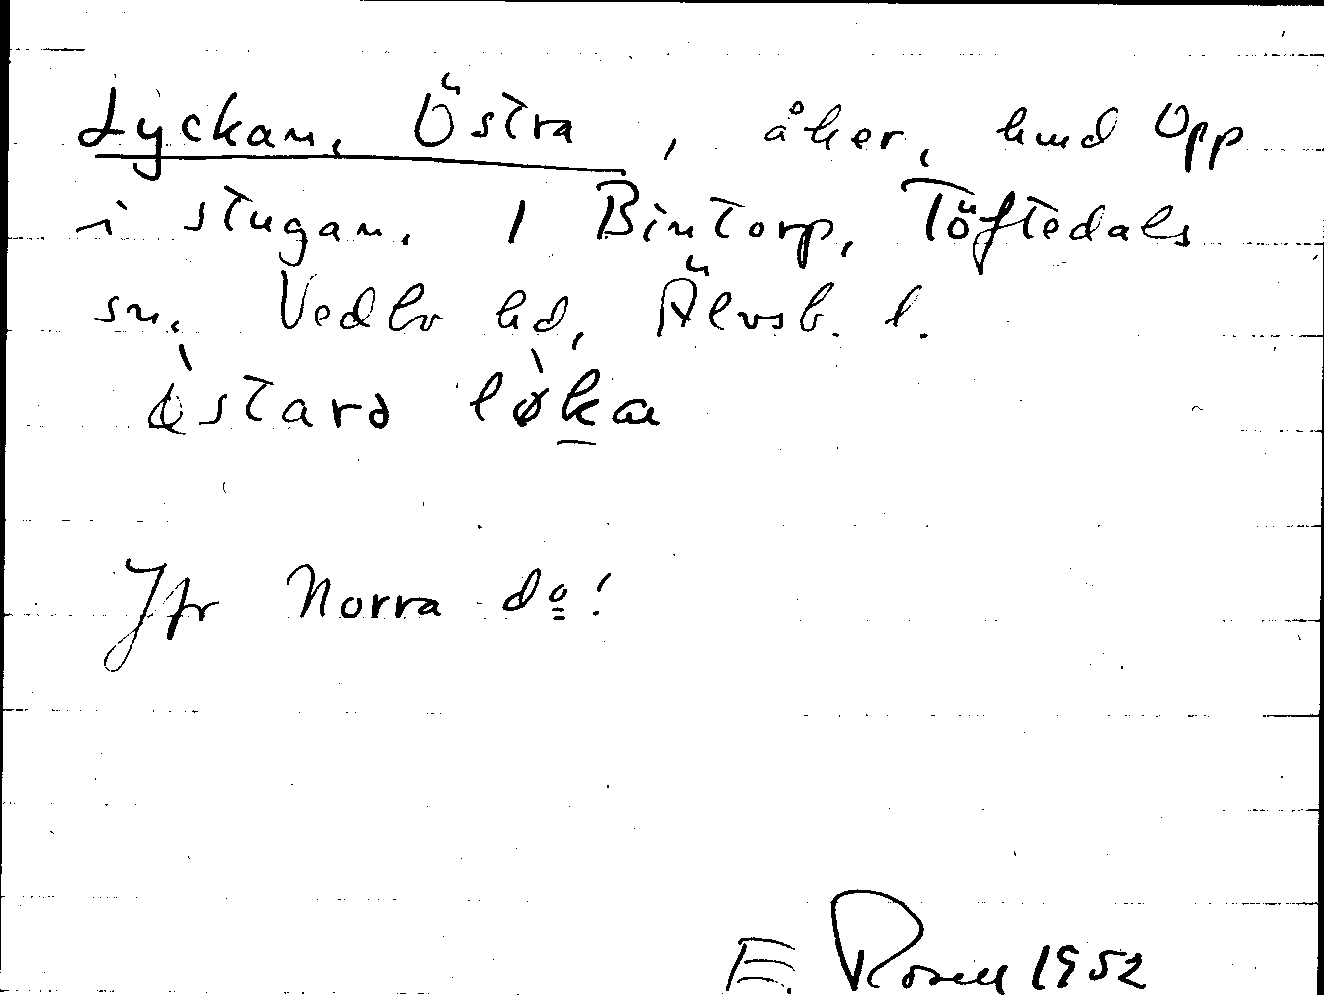 Lyckan, Östra, åker, hmd Opp
i stugan. 1 Bintorp, Töftedals
sn. Vedbo hd, Älvsb. l.
ø̀starə lø̀ka
Jfr Norra do!
E. Rosell 1952